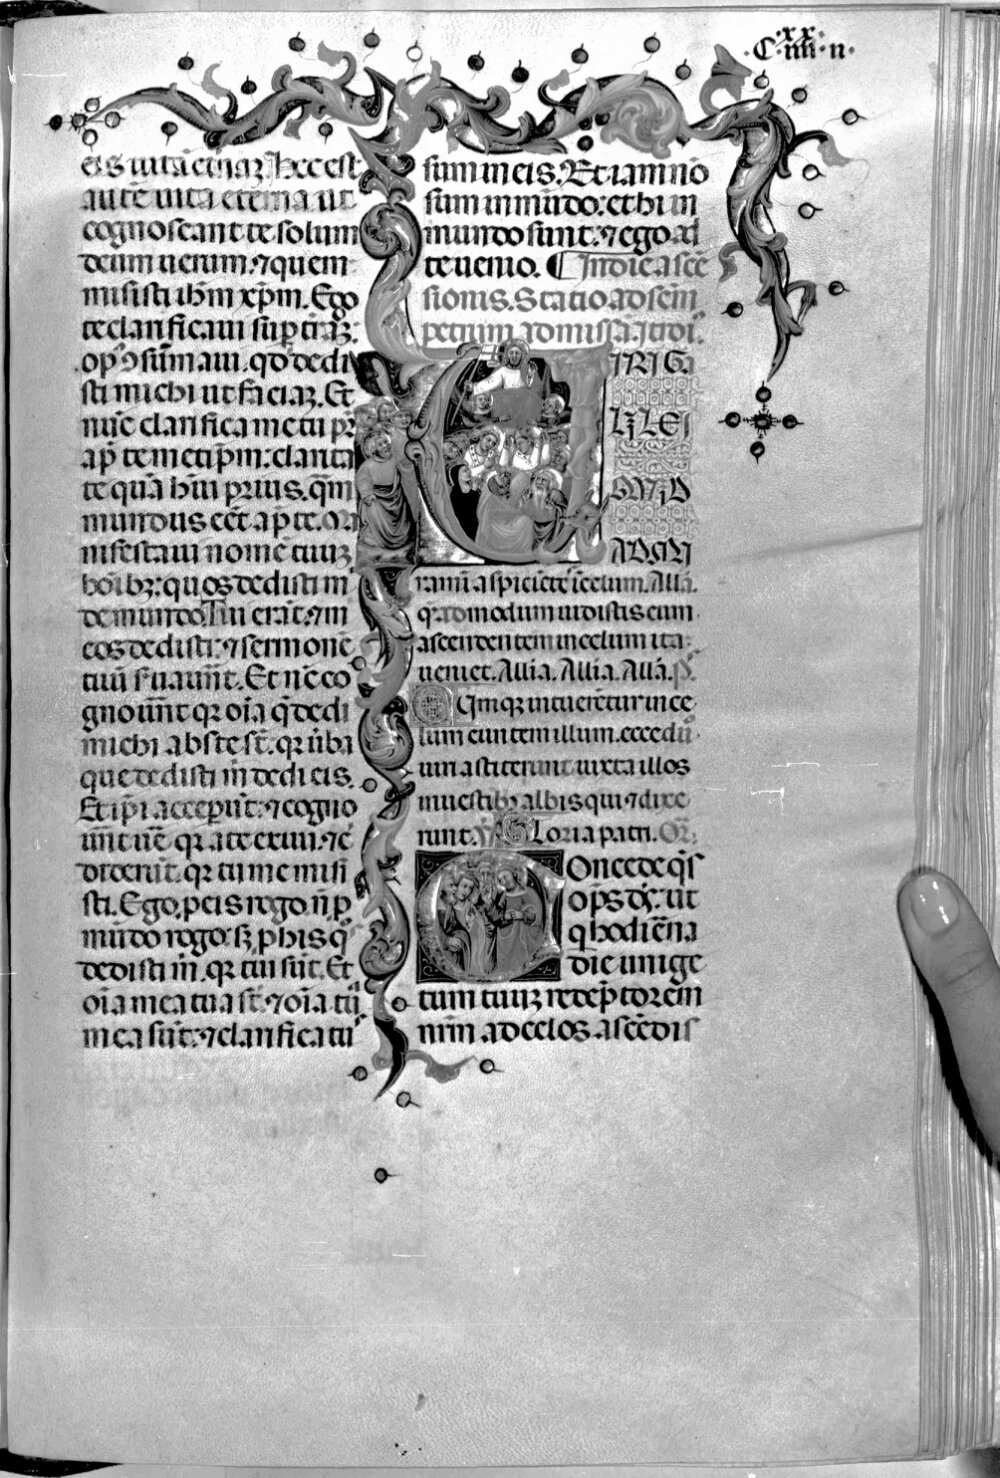 .C.xx iiii.n.
eis uitā etnaʒ. Hec est
autē uita eterna ut
cognoscant te solum
deum uerum. ⁊ quem
misisti ihm̄ xp̄m. Ego
te clarificaui sup̄ trāʒ.
opꝰ ꝯsūmaui. qd̄ dedi
sti michi ut faciaʒ. Et
nūc clarifica me tu pr̄
ap̄ temetip̄m: clarita
te quā hūi prius. qm̄
mundus eēt ap̄ te. Ma
nifestaui nomē tuuʒ
hoībʒ: quos dedisti m̄
de mundo. Tui erāt. ⁊ m̄
eos dedisti: ⁊ sermonē
tuū ẜuauūt. Et nūc co
gnouūnt qꝛ oīa q̄ dedi
michi abs te st̄. qꝛ ūba
que dedisti m̄ dedi eis.
Et ip̄i acceperūt: ⁊ cogno
uūt uē qꝛ a te exiui. ⁊ c̄
diderūt. qꝛ tu me misi
sti. Ego p̱ eis rogo. n̄ p̱
mūdo rogo. sʒ p̱ his qͦs
dedisti m̄. qꝛ tui sūt. Et
oīa mea tua st̄. ⁊ oīa tua
mea sūt: ⁊ clarificatus
sum in eis. Et iam nō
sum in mūdo: et hi in
mundo sunt. ⁊ ego ad
te uenio. In die ascē
sionis. Statio ad scm̄
petrum ad missā. Ītroī.
VIRI GA
LILEI
QMID
ADMI
ramī aspiciētes ī celum. Allā.
q̄adomodum uidistis eum
ascendentem in celum ita
ueniet. Allīa. Allīa. Allā. P̄s
Cumqꝫ intuerētur in ce
lum euntem illum. ecce duo
uiri astiterunt iuxta illos
in uestibꝫ albis qui ⁊ dixe
runt. V̄. Gloria patri. Or̄.
Concede qs̄
op̄s ds̄. ut
q hodiēna
die unige
tum tuuʒ redēptorem
nr̄m ad celos ascēdis